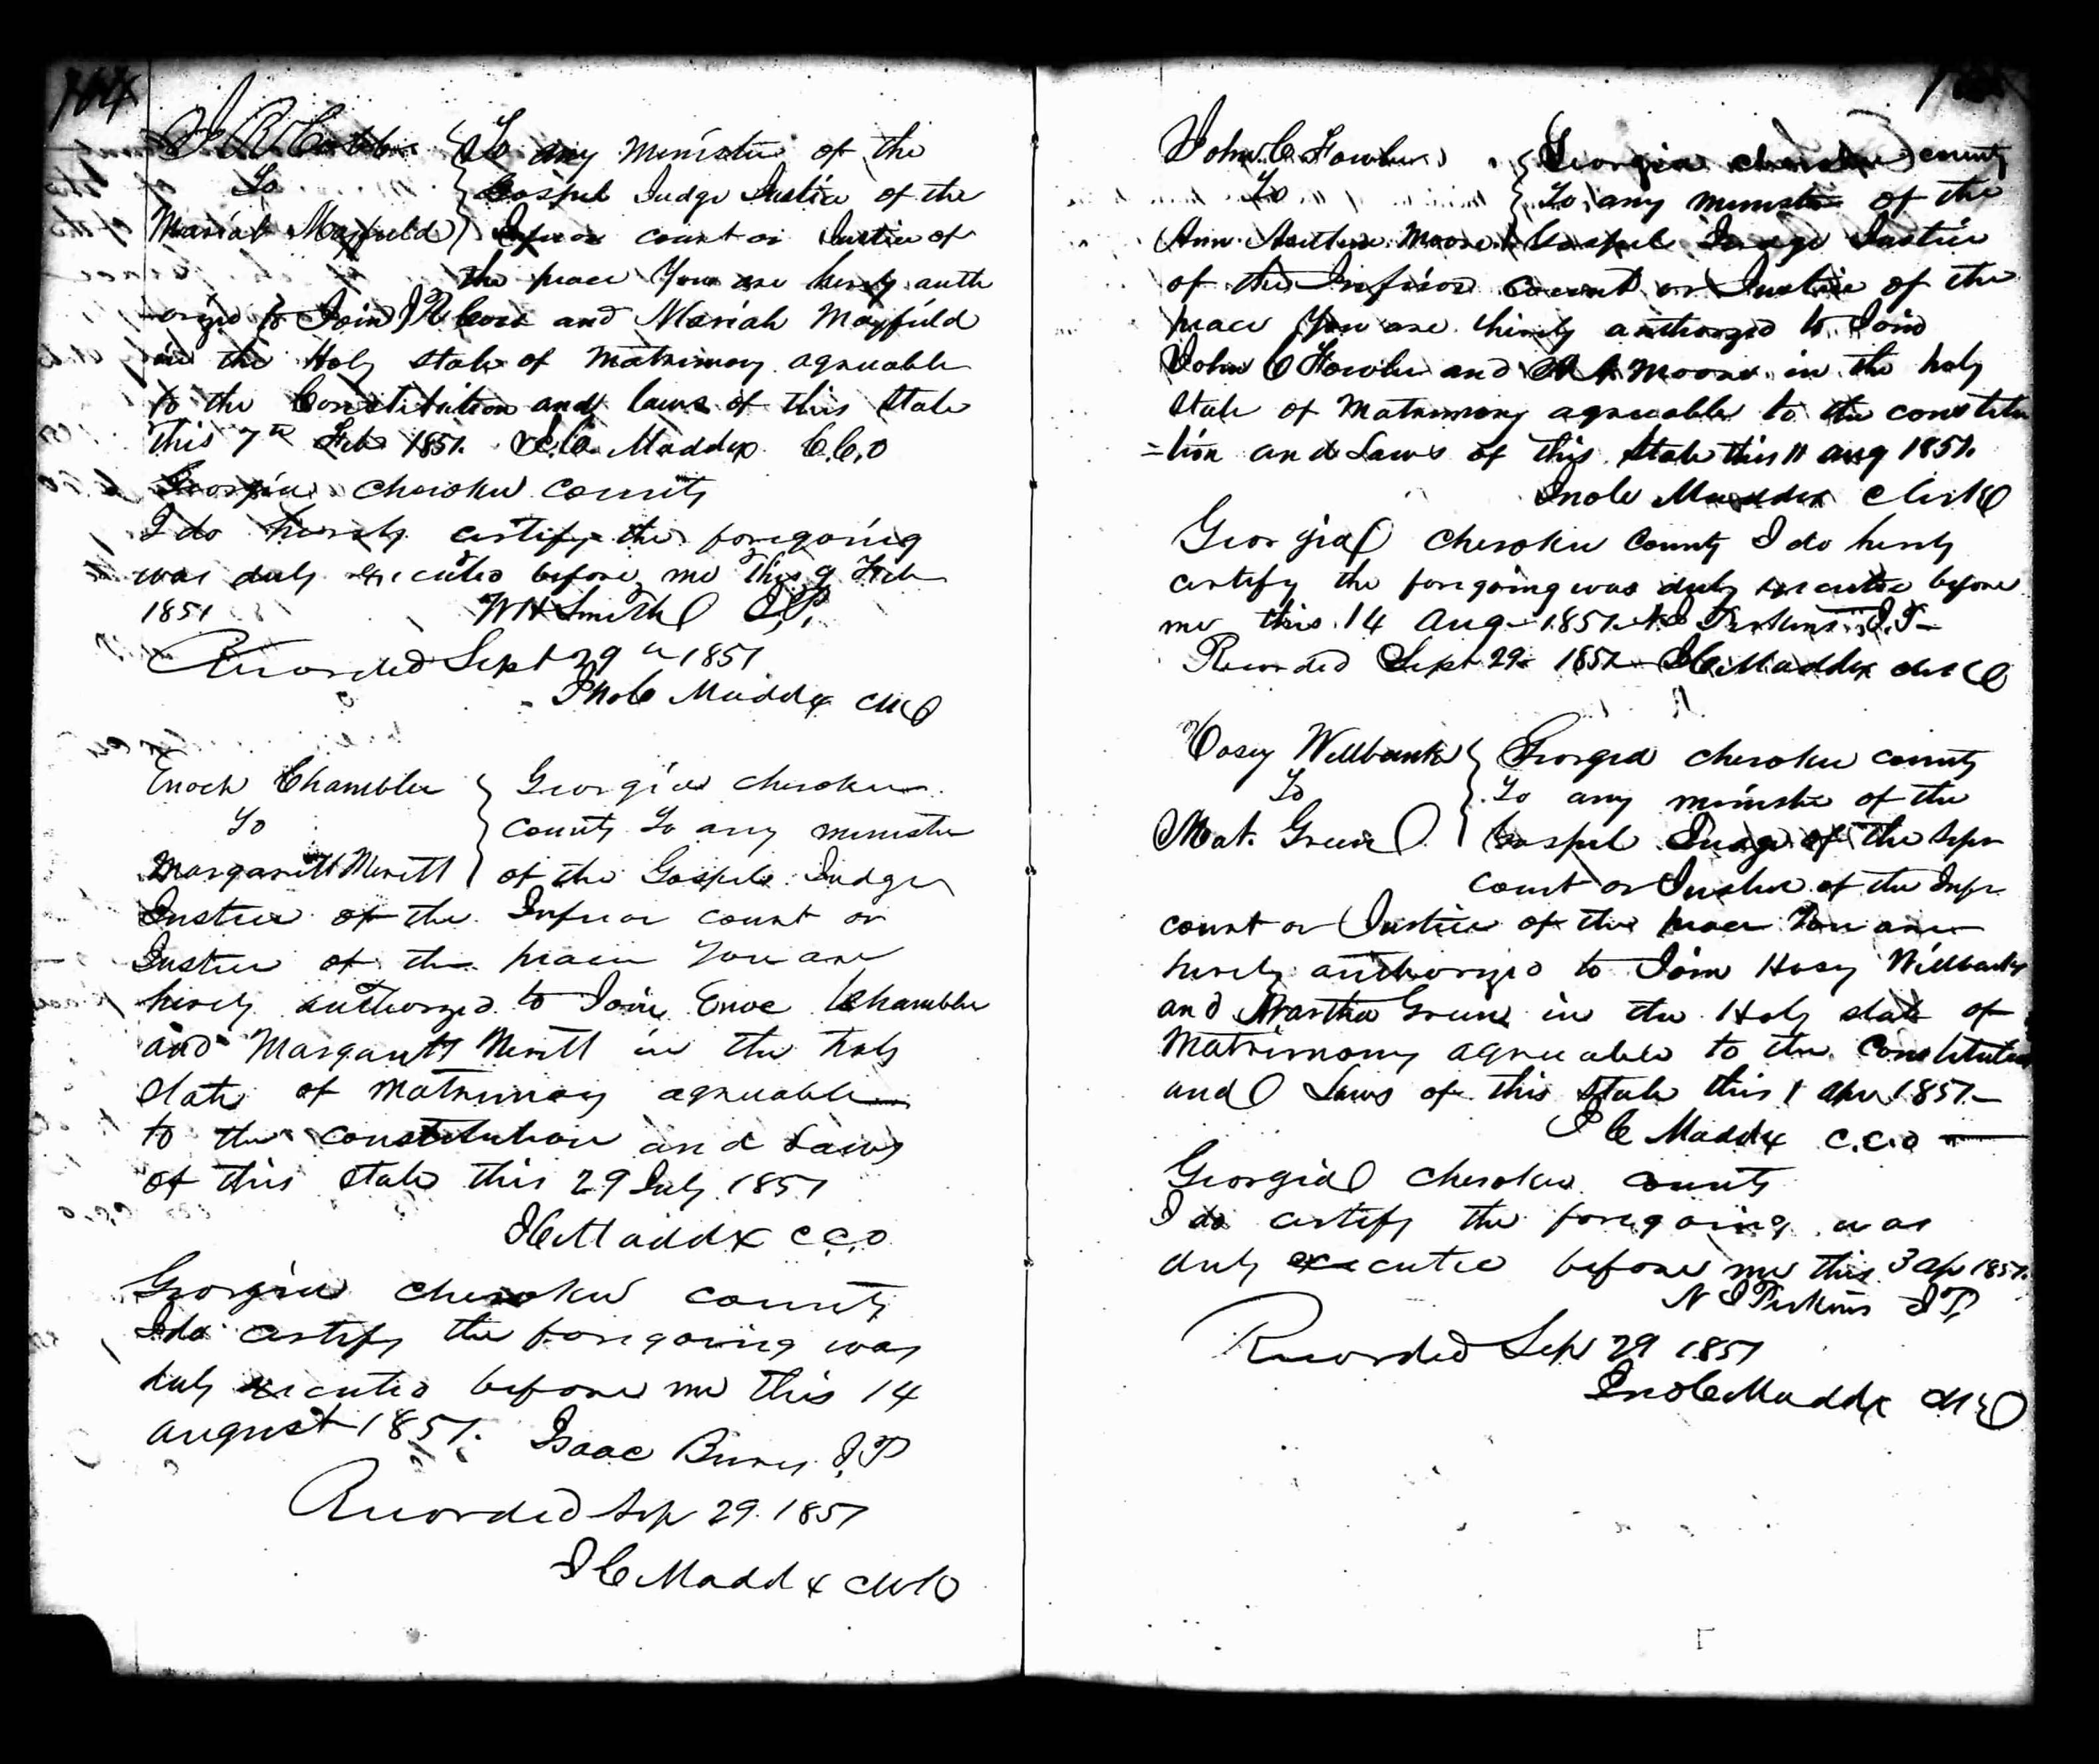 To any Minister of the
To Gospel Judge Justice of the
Mariah Mayfield Inferior court or Justice of
the peace You are hereby auth
-orized to Join and Mariah Mayfield
in the Holy state of Matrimony agreuable
to the Constitution and laws of this State
This 7th Feb 1851. J.C. Maddox C.C.O
Georgia Cherokee County
I do hereby certify the foregoing
was duly executed before me This 9 Feb
1851 W H Smith J.P.
Recorded Sept 29th 1851
Jno C Maddox Clk CO
Enoch Chambler Georgia Cherokee
To County To any minister
Margarett Meritt of the Gospel Judge
Justice of the Inferior court or
Justice of the peace You are
hereby authorized to Join Enoc Chambler
and Margarett Meritt in the holy
state of Matrimony agreuable
to the constitution and Laws
of this state this 29 July 1851
J C Maddox C.C.O.
Georgia Cherokee County
I do certify the foregoing was
duly executed before me this 14
august 1851. Isaac J.P
Recorded Sep 29. 1851
J C Maddox Clk CO
John C Fowler Georgia Cherokee county
To To any minister of the
Ann Moore Gospel Judge Justice
of the Inferior Court or Justice of the
peace You are hereby authorized to Join
John C Fowler and A A Moore in the holy
state of Matrimony agreeable to the constitu
=tion and Laws of this State this 11 aug 1851.
Jno C Maddox Clerk CO
Georgia Cherokee County I do hereby
certify the foregoing was duly executed before
me this 14 aug 1851. N J Perkins J.P
Recorded Sept 29 1851 J C Maddox Clk CO
Hosey Willbanks Georgia Cherokee county
To To any minister of the
Mat. Green Gospel Judge of the Supr
court or Justice of the Infr
court or Justice of the peace You are
hereby authorized to Join Hosey Willbanks
and Martha Green in the Holy state of
Matrimony agreeable to the Constitution
and Laws of this State this 1 Apr 1851.
J C Maddox C.C.O
Georgia Cherokee County
I do certify the foregoing was
duly executed before me this 3 ap 1851.
N J Perkins J P
Recorded Sep 29 1851
Jno C Maddox Clk CO